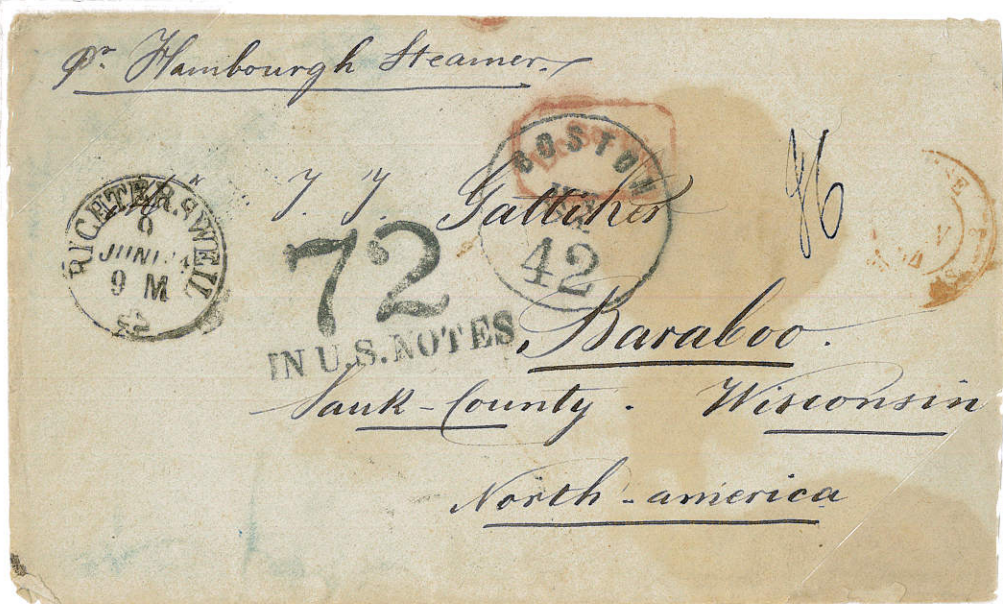 pr. Hambourgh Steamer.
RICHTERSWEIL
9
JUNI 64
9 M
BOSTON
42
J. J. Galliher
72
IN U.S. NOTES
Baraboo.
Sauk-County. Wisconsin
North-america